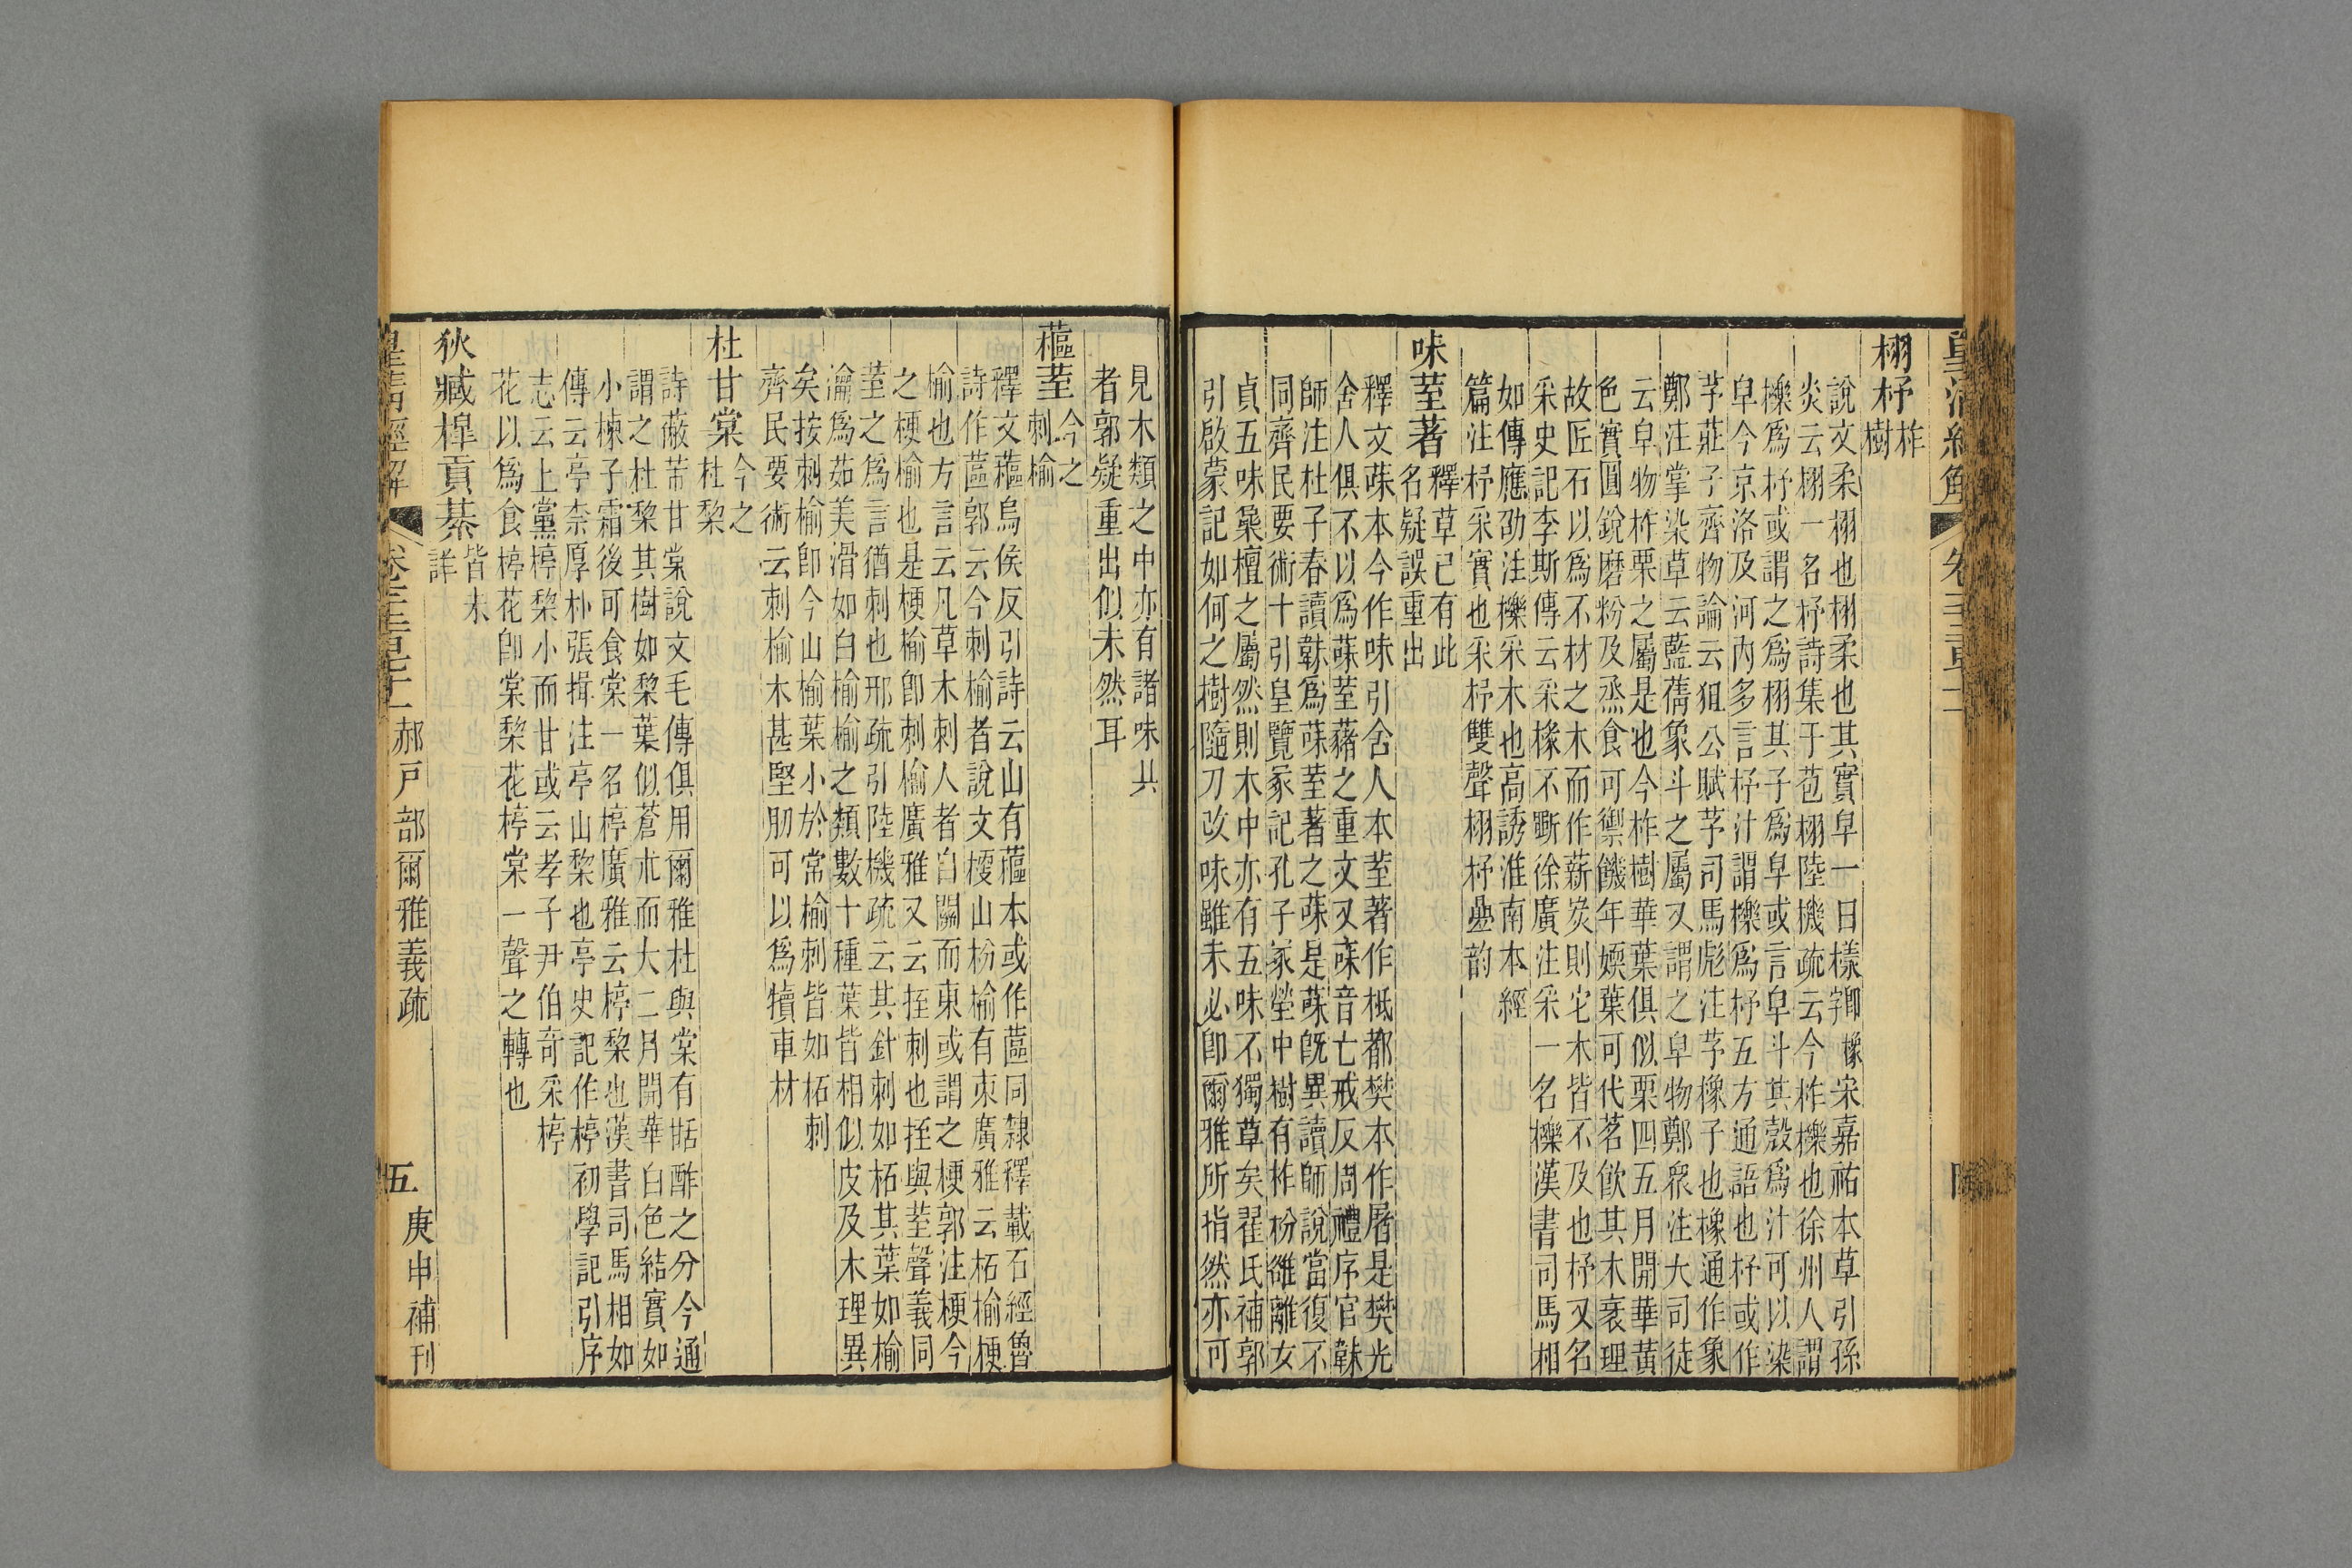 栩杼柞
樹
說文柔栩也栩柔也其實阜一曰樣卽橡宋嘉祐本草引孫
炎云栩一名杼詩集于苞栩陸機疏云今柞櫟也徐州人謂
櫟爲杼或謂之爲栩其子爲皁或言皁斗其殼爲汁可以染
皁今京洛及河內多言杼汁謂櫟爲杼五方通語也杼或作
芧莊子齊物論云狙公賦芧司馬彪注芧橡子也橡通作象
鄭注掌染草云藍蒨象斗之屬又謂之皁物鄭衆注大司徒
云皁物柞栗之屬是也今柞樹華葉俱似栗四五月開華黃
色實圓銳磨粉及烝食可禦饑年媆葉可代茗飮其木衺理
故匠石以爲不材之木而作薪炭則宅木皆不及也杼又名
采史記李斯傳云采椽不斲徐廣注采一名櫟漢書司馬相
如傳應劭注櫟采木也高誘淮南本經
篇注杼采實也采杼雙聲栩杼疊韵
味荎著釋草已有此
名疑誤重出
釋文菋本今作味引舍人本荎著作柢都樊本作屠是樊光
舍人俱不以爲菋荎藸之重文又菋音亡戒反周禮序官韎
師注杜子春讀韎爲菋荎著之菋是菋旣異讀師說當復不
同齊民要術十引皇覽冢記孔子冢塋中樹有柞枌雒離女
貞五味毚檀之屬然則木中亦有五味不獨草矣翟氏補郭
引啟蒙記如何之樹隨刀改味雖未必卽爾雅所指然亦可
見木類之中亦有諸味共
者郭疑重出似未然耳
蓲荎今之
刺榆
釋文蓲烏侯反引詩云山有蓲本或作藲同隸釋載石經魯
詩作蓲郭云今刺榆者說文梗山枌榆有朿廣雅云柘榆梗
榆也方言云凡草木刺人者自關而東或謂之梗郭注梗今
之梗榆也是梗榆卽刺榆廣雅又云挃刺也挃與荎聲義同
荎之爲言猶刺也邢疏引陸機疏云其針刺如柘其葉如榆
瀹爲茹美滑如白榆榆之類數十種葉皆相似皮及木理異
矣按刺榆卽今山榆葉小於常榆刺皆如柘刺
齊民要術云刺榆木甚堅肕可以爲犢車材
杜甘棠今之
杜棃
詩蔽芾甘棠說文毛傳俱用爾雅杜與棠有甛酢之分今通
謂之杜棃其樹如棃葉似蒼朮而大二月開華白色結實如
小楝子霜後可食棠一名楟廣雅云楟棃也漢書司馬相如
傳云亭柰厚朴張揖注亭山棃也亭史記作楟初學記引序
志云上黨楟棃小而甘或云孝子尹伯奇采楟
花以爲食楟花卽棠棃花楟棠一聲之轉也
狄臧槹貢綦皆未
詳
皇淸經解 郝戶部爾雅義疏 五 庚申補刊